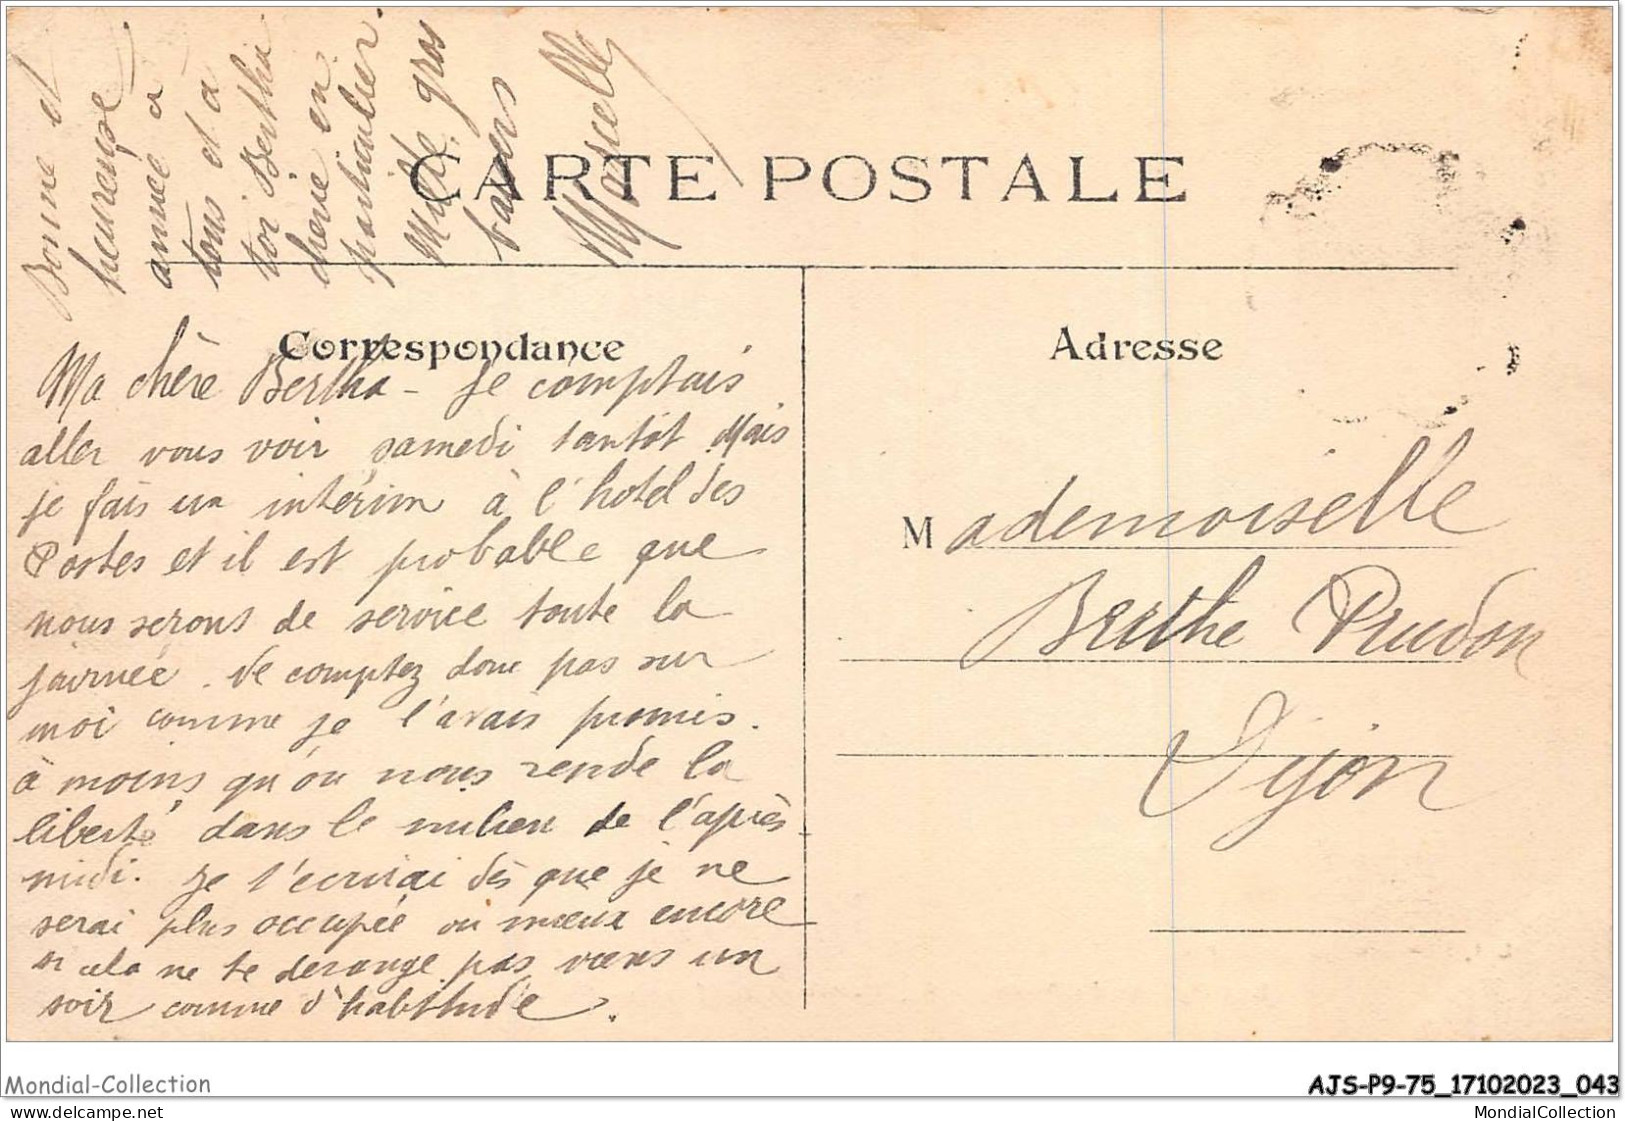 Bonne et
heureuse
année à
tous et a
toi Bertha
cherie en
particulier.
Mille gros
baisers
Marcelle
CARTE POSTALE
Correspondance
Adresse
Ma chère Bertha - Je comptais
aller vous voir samedi tantôt Mais
je fais un intérim à l'hotel des
Postes et il est probable que
nous serons de service toute la
journée. Ne comptez donc pas sur
moi comme je l'avais promis.
à moins qu'on nous rende la
liberté dans le milieu de l'après
midi. Je t'écrirai dès que je ne
serai plus occupée ou mieux encore
si cela ne te derange pas viens un
soir comme d'habitude.
Mademoiselle
Berthe Prudon
Dijon
Mondial-Collection
AJS-P9-75_17102023_043
MondialCollection
https://www.delcampe.net